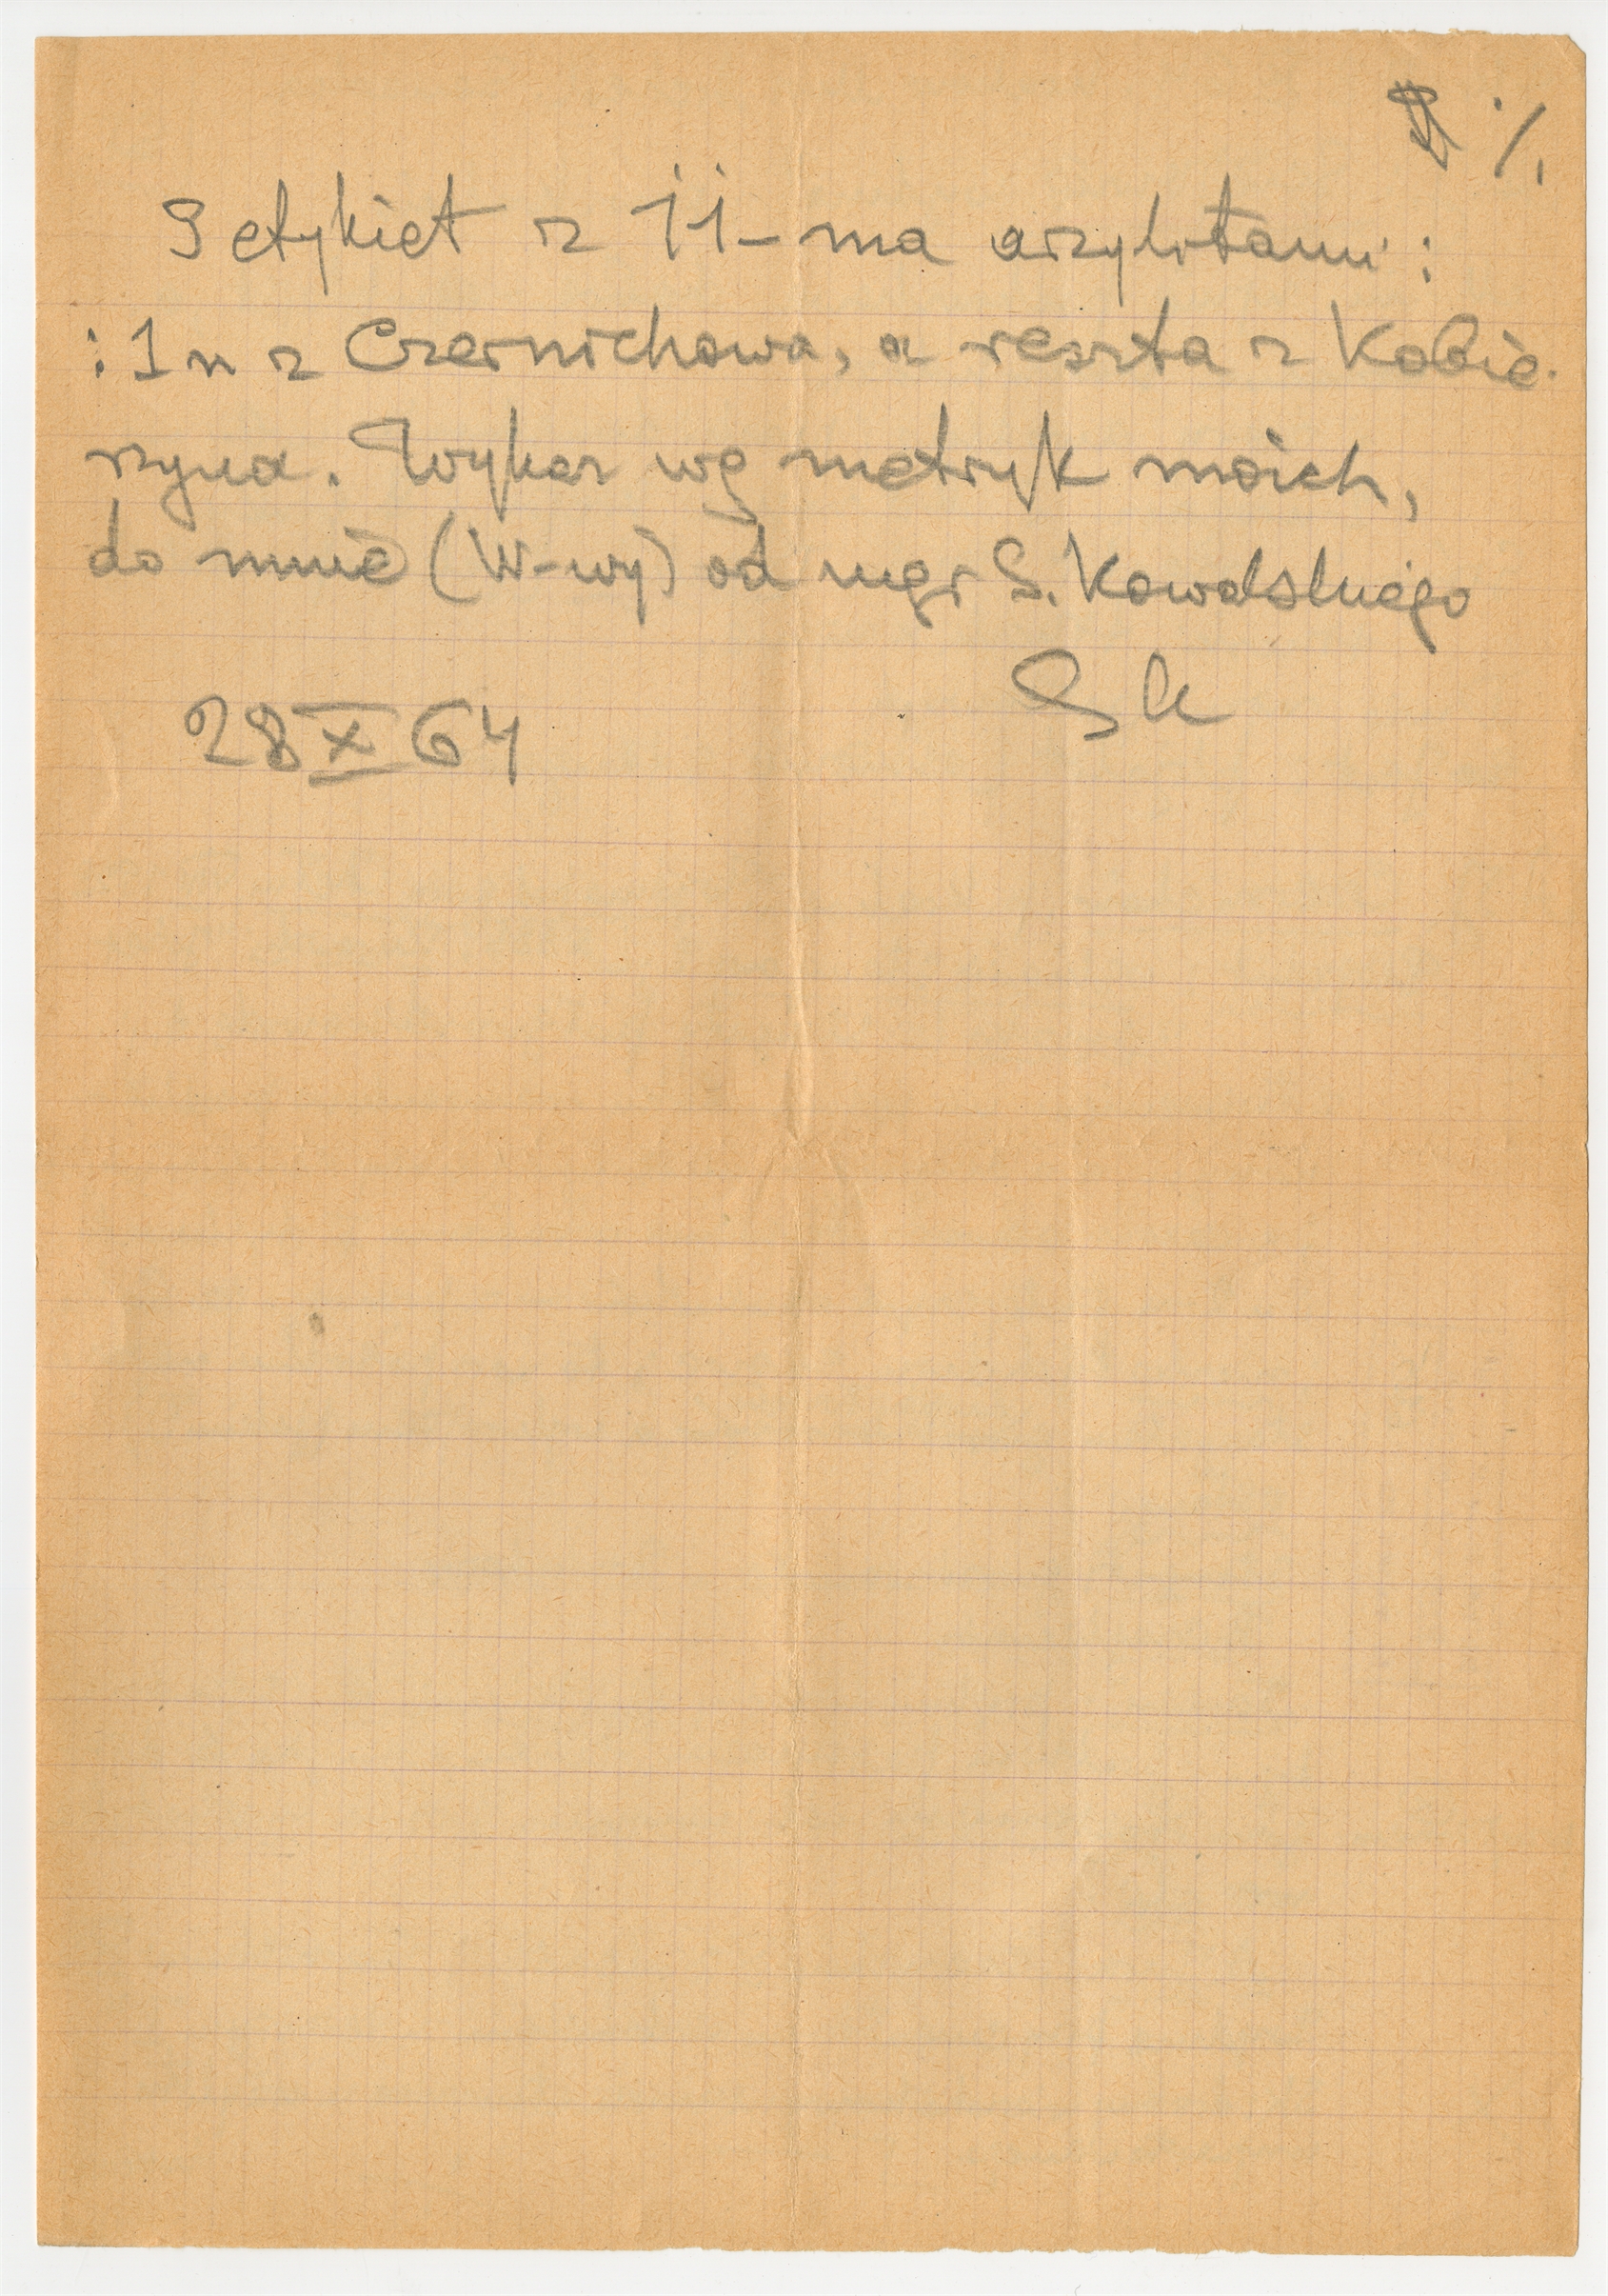 ·/.
9 etykiet z 11-ma azylotami :
: 1 n z Czernichowa, a reszta z Kobie-
rzyna. Wykaz wg metryk moich,
do mnie (W-wy) od mgr S. Kowalskiego
28 X 64